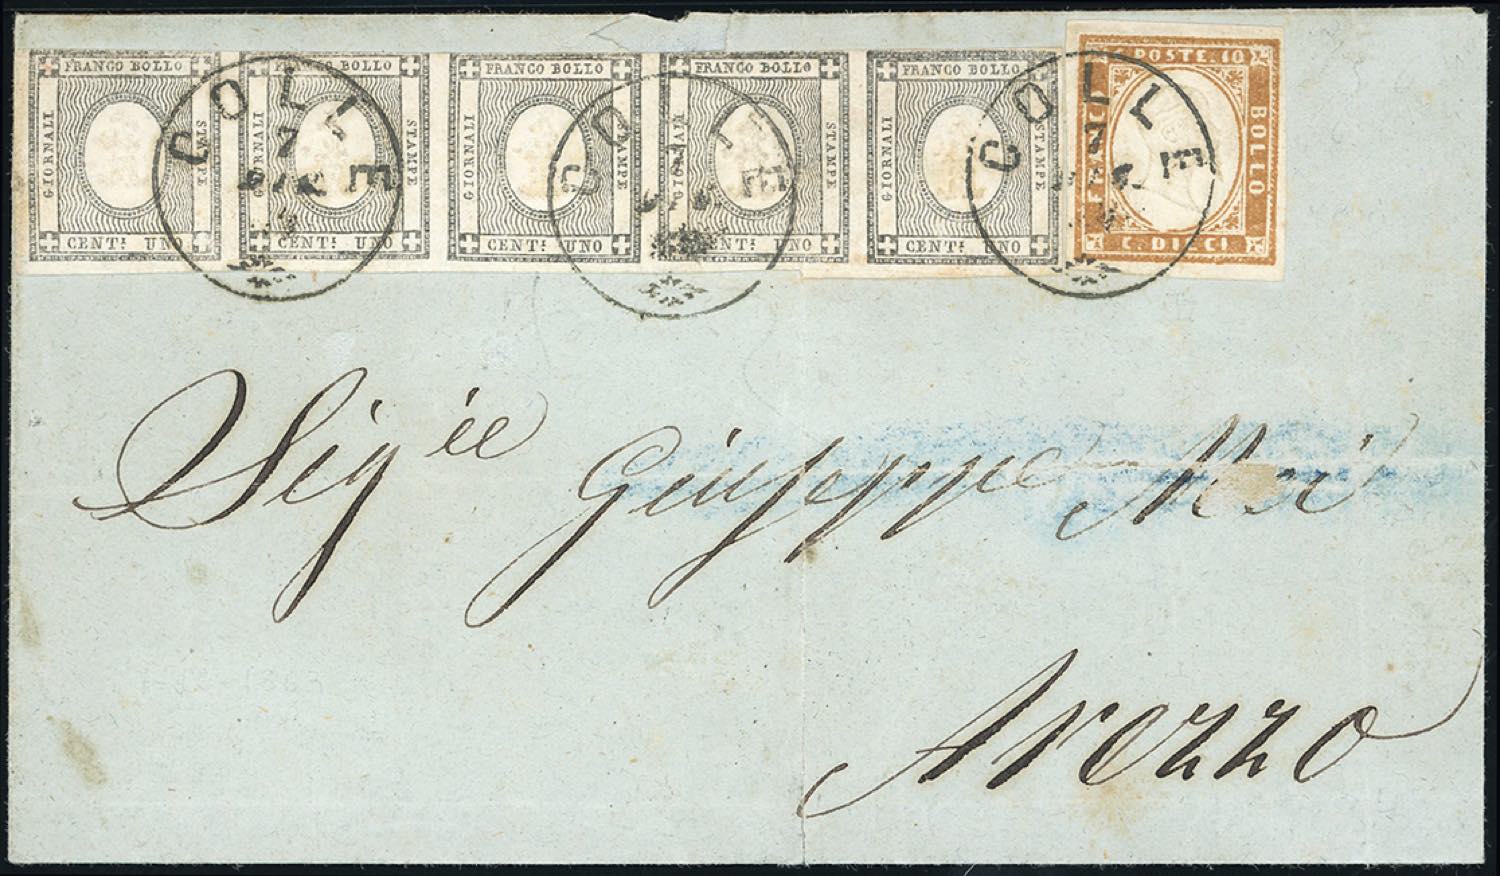 FRANCO BOLLO
GIORNALI
STAMPE
CENT: UNO
FRANCO BOLLO
GIORNALI
STAMPE
CENT: UNO
FRANCO BOLLO
GIORNALI
STAMPE
CENT: UNO
FRANCO BOLLO
GIORNALI
STAMPE
CENT: UNO
FRANCO BOLLO
GIORNALI
STAMPE
CENT: UNO
C. POSTE. 10
FRANCO
BOLLO
C. DIECI
COLLE
7
COLLE
COLLE
7
Sig.re Giuseppe
Arezzo